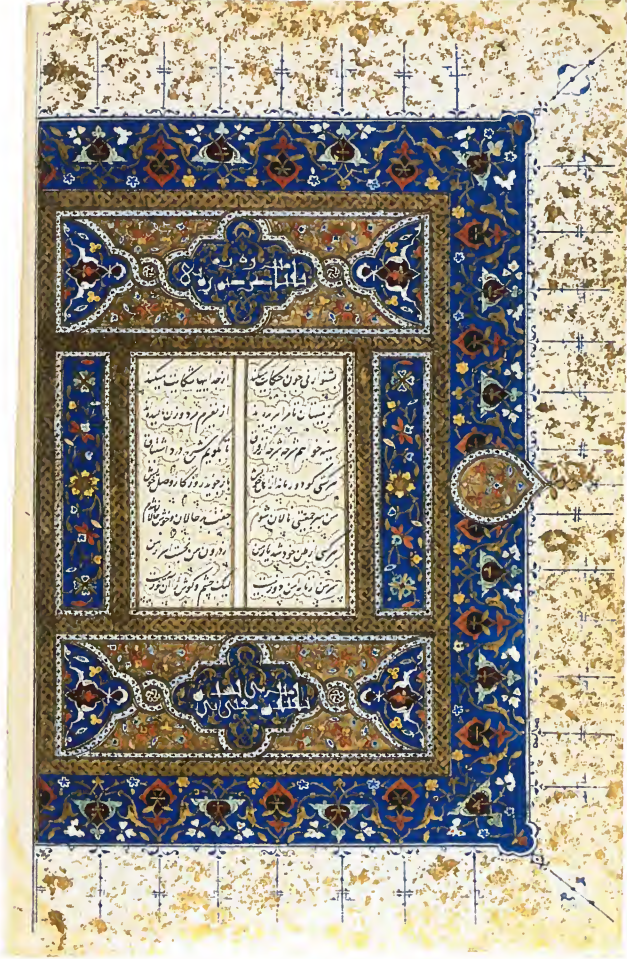 بشنو از نی چون حکایت میکند از جداییها شکایت میکند
کز نیستان تا مرا ببریده‌اند از نفیرم مرد و زن نالیده‌اند
سینه خواهم شرحه شرحه از فراق تا بگویم شرح درد اشتیاق
هر کسی کو دور ماند از اصل خویش باز جوید روزگار وصل خویش
من بهر جمعیتی نالان شدم جفت بدحالان و خوش حالان شدم
هر کسی از ظن خود شد یار من از درون من نجست اسرار من
سر من از ناله من دور نیست لیک چشم و گوش را آن نور نیست